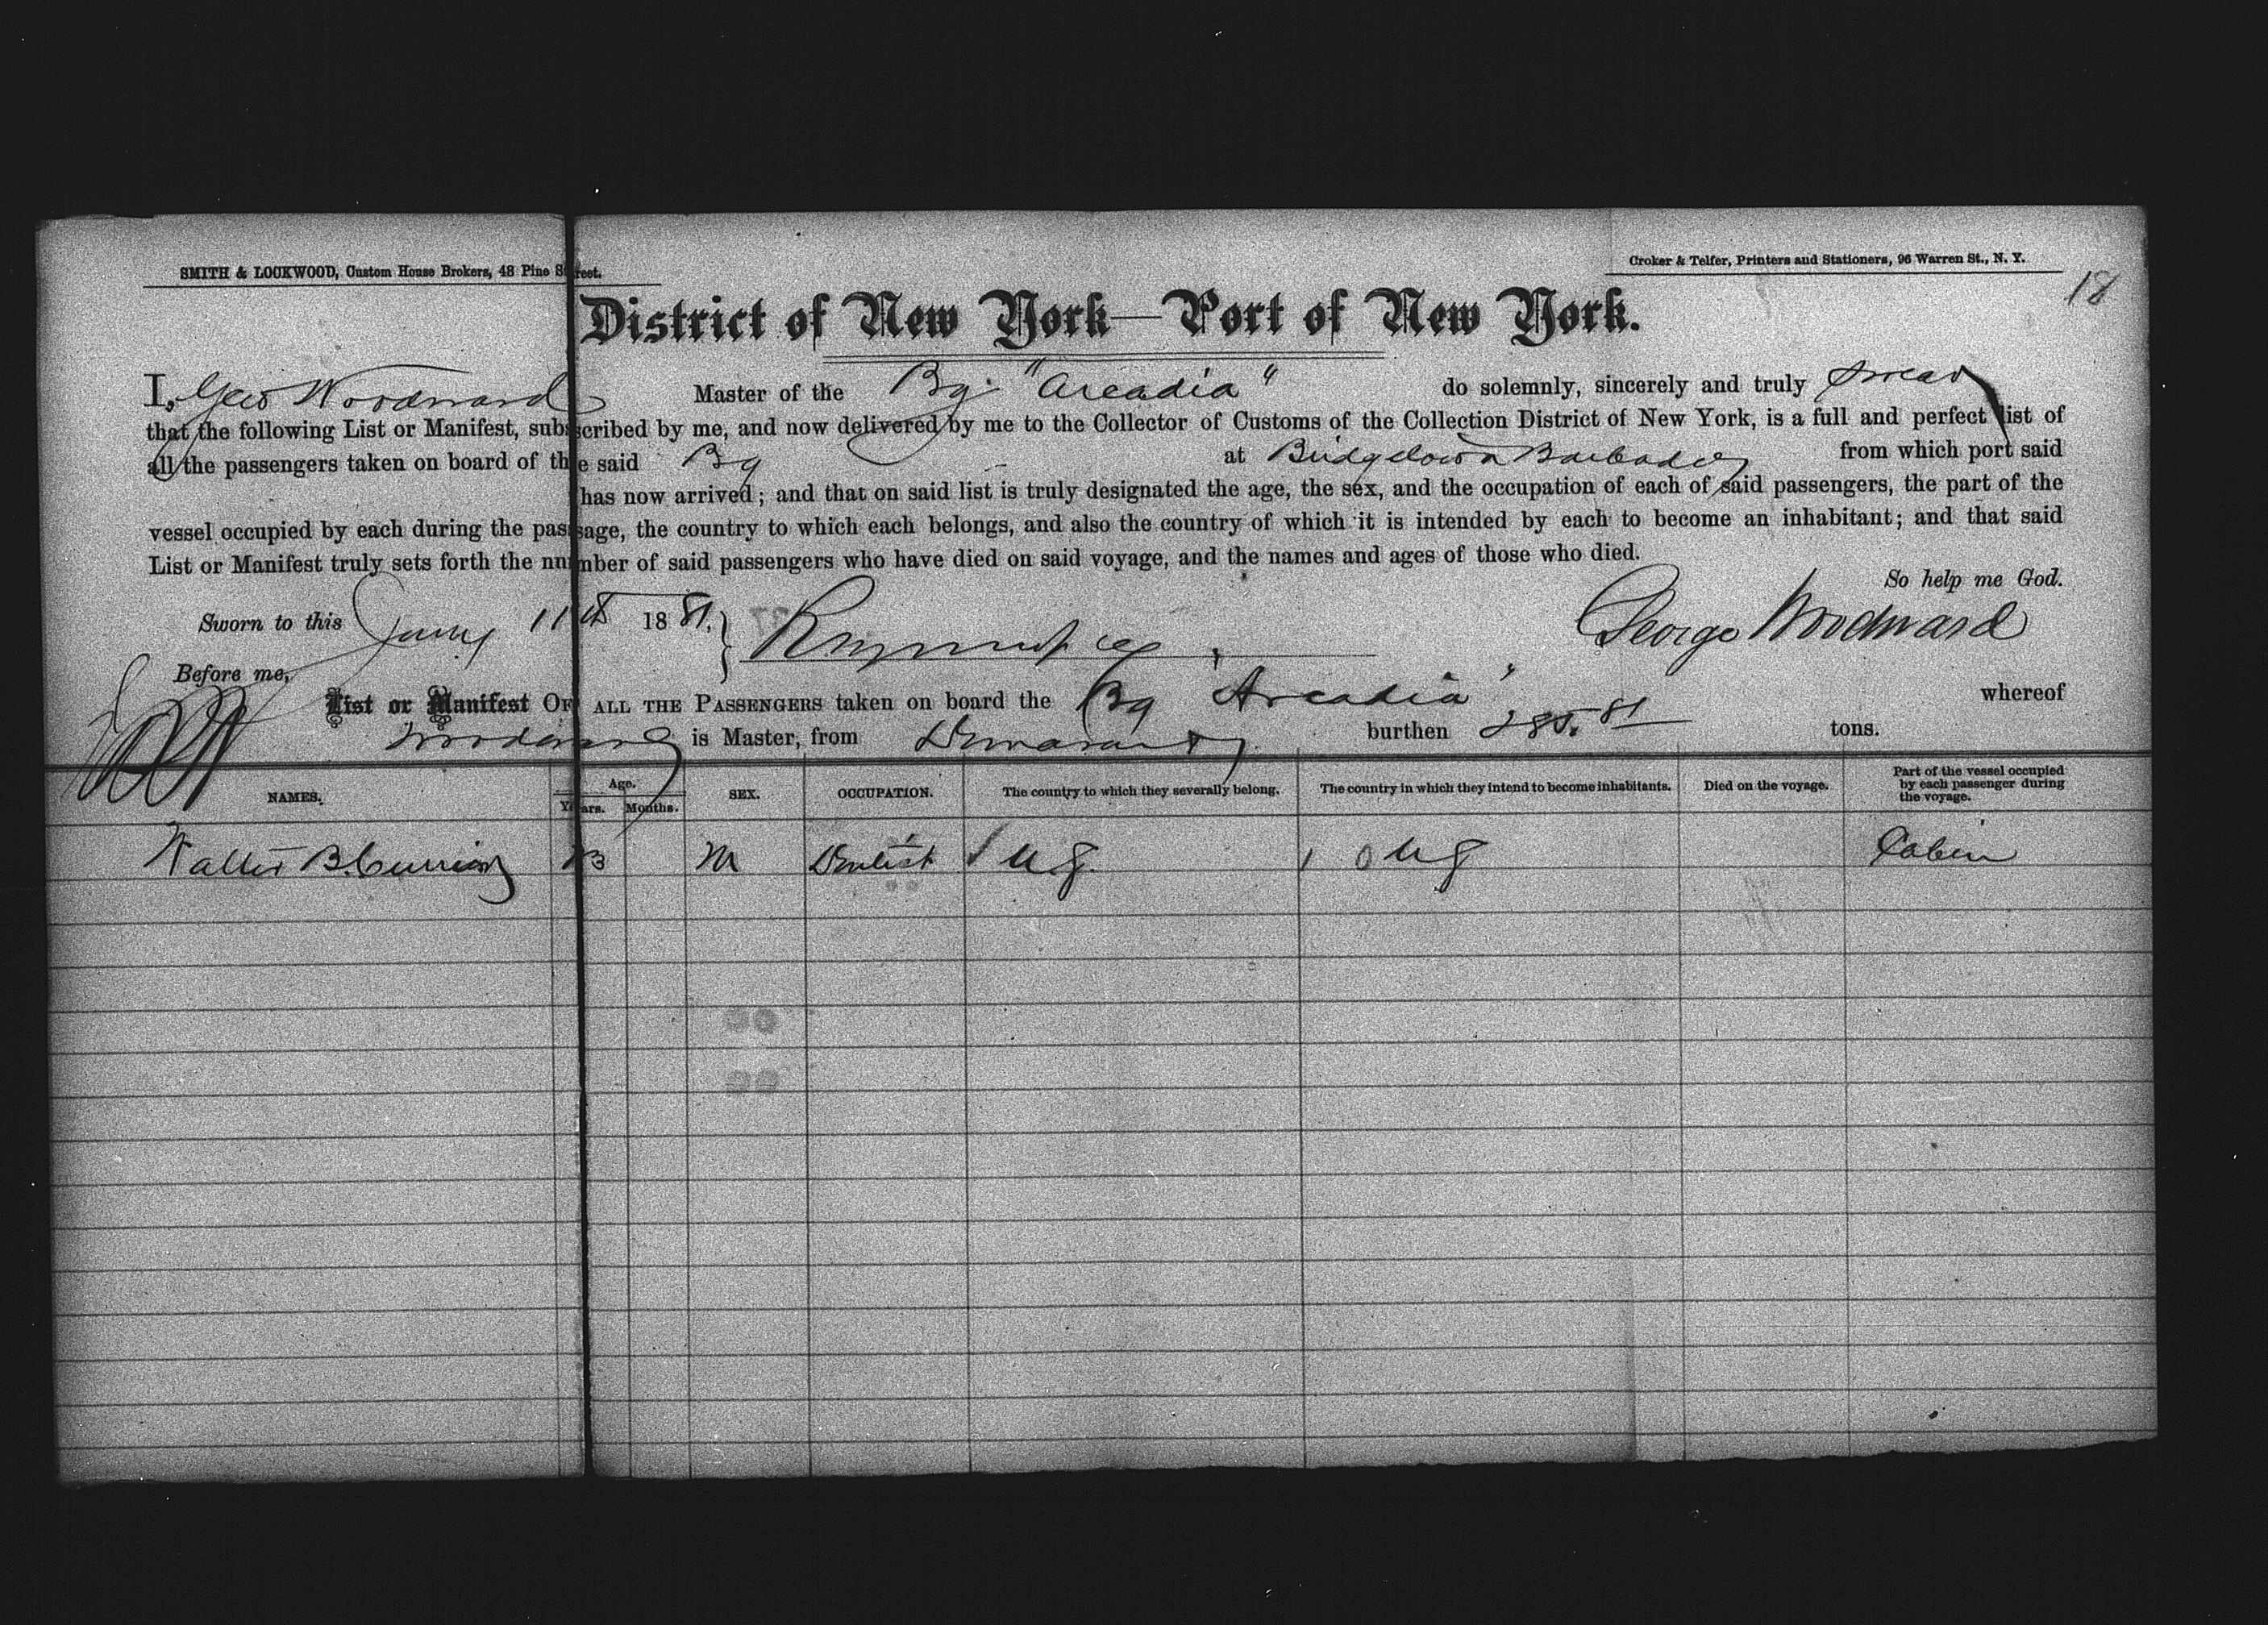 SMITH & LOCKWOOD, Custom House Brokers, 48 Pine Street.
Croker & Telfer, Printers and Stationers, 96 Warren St., N. Y.
18
District of New York—Port of New York.
I, Geo Woodward Master of the Bg. "Arcadia" do solemnly, sincerely and truly swear
that the following List or Manifest, subscribed by me, and now delivered by me to the Collector of Customs of the Collection District of New York, is a full and perfect list of
all the passengers taken on board of the said Bg at Bridgetown Barbados from which port said
has now arrived; and that on said list is truly designated the age, the sex, and the occupation of each of said passengers, the part of the
vessel occupied by each during the passage, the country to which each belongs, and also the country of which it is intended by each to become an inhabitant; and that said
List or Manifest truly sets forth the number of said passengers who have died on said voyage, and the names and ages of those who died.
So help me God.
Sworn to this Jany 11th 1881. George Woodward
Before me,
List or Manifest OF ALL THE PASSENGERS taken on board the Bg Arcadia whereof
Woodward is Master, from burthen 285.81 tons.
NAMES. Age. Years. Months. SEX. OCCUPATION. The country to which they severally belong. The country in which they intend to become inhabitants. Died on the voyage. Part of the vessel occupied by each passenger during the voyage.
Walter B. M Dentist Cabin